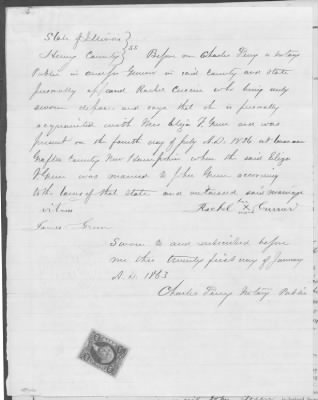 State of Illinois }
Henry County } SS Before me Charles Perry a Notary
Public in and for Geneseo in said County and State
personally appeared Rachel Currier who being duly
sworn deposes and says that she is personally
acquainted with Mrs Eliza F. Green and was
present on the fourth day of July A.D. 1826 at Canaan
Grafton County New Hampshire when the said Eliza
F Green was married to John Green according
to the laws of that state and witnessed said marriage
witness Rachel her X mark Currier
James Green
Sworn to and subscribed before
me this twenty first day of January
A.D. 1863
Charles Perry Notary Public